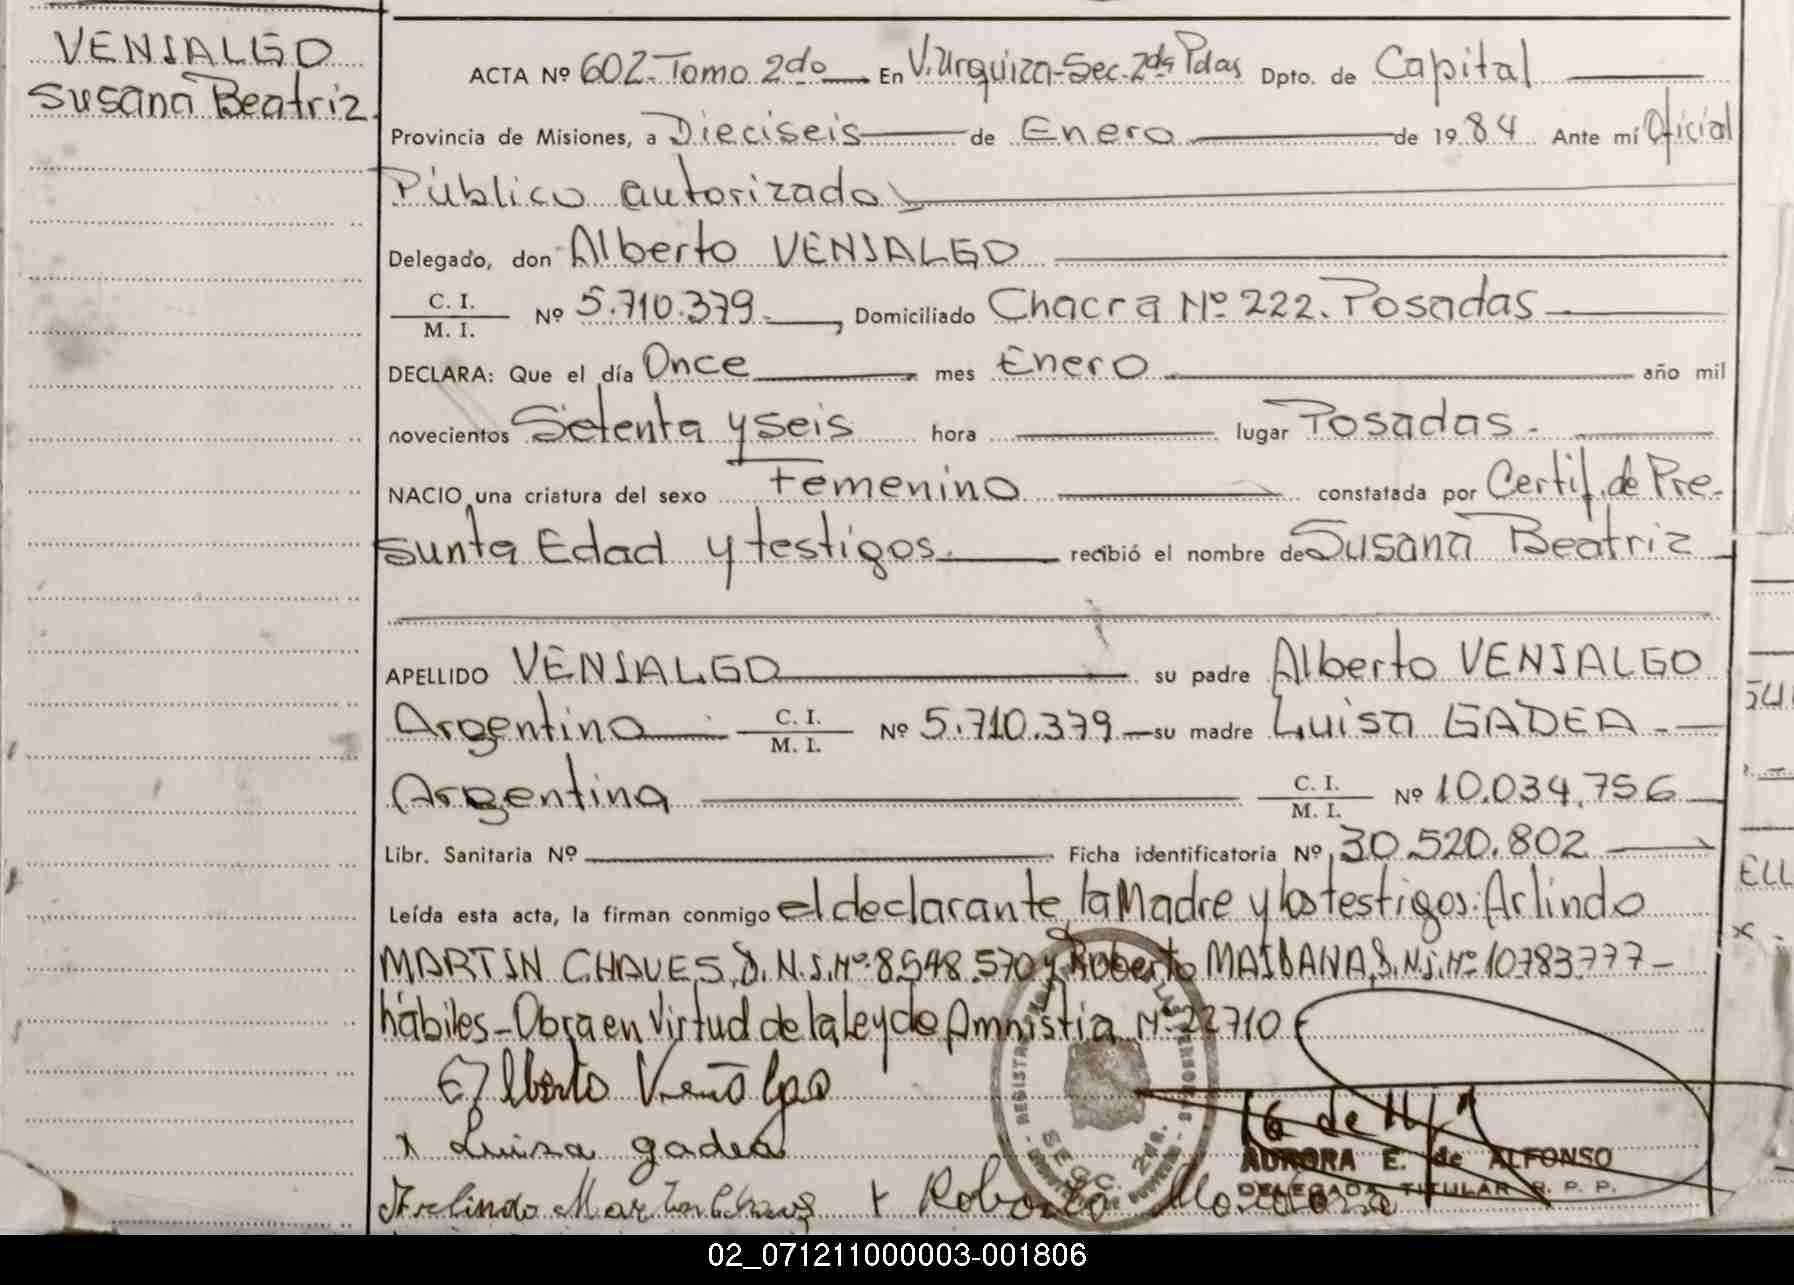 VENIALGO
Susana Beatriz
ACTA Nº 602-Tomo 2do En V. Urquiza-Sec. 2da Pdas Dpto. de Capital
Provincia de Misiones, a Dieciseis de Enero de 1984 Ante mí Oficial
Público autorizado
Delegado, don Alberto VENIALGO
C. I.
M. I. Nº 5.710.379 , Domiciliado Chacra Nº 222. Posadas
DECLARA: Que el día Once mes Enero año mil
novecientos Setenta y seis hora lugar Posadas.
NACIO una criatura del sexo Femenino constatada por Certif. de Pre-
sunta Edad y testigos. recibió el nombre de Susana Beatriz
APELLIDO VENIALGO su padre Alberto VENIALGO
Argentino C. I.
M. I. Nº 5.710.379 su madre Luisa GADEA
Argentina C. I.
M. I. Nº 10.034.756
Libr. Sanitaria Nº Ficha identificatoria Nº 30.520.802
Leída esta acta, la firman conmigo el declarante, la Madre y los testigos: Arlindo
MARTIN CHAVES, D.N.I. Nº 8.548.570 y Roberto MAIDANA, D.N.I. Nº 10783777-
hábiles-Obra en virtud de la ley de Amnistia Nº 22710
Alberto
x Luisa gadea
Arlindo Martin Chaves x Roberto
SECC. 2da.
AURORA E. de ALFONSO
DELEGADA TITULAR R. P. P.
02_071211000003-001806